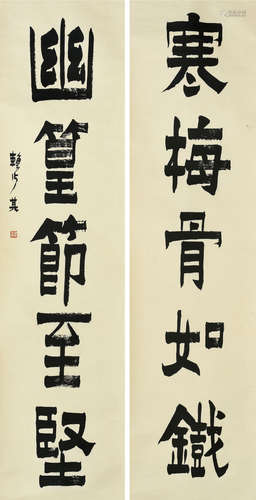 寒梅骨如鐵
幽篁節至堅
賴少其